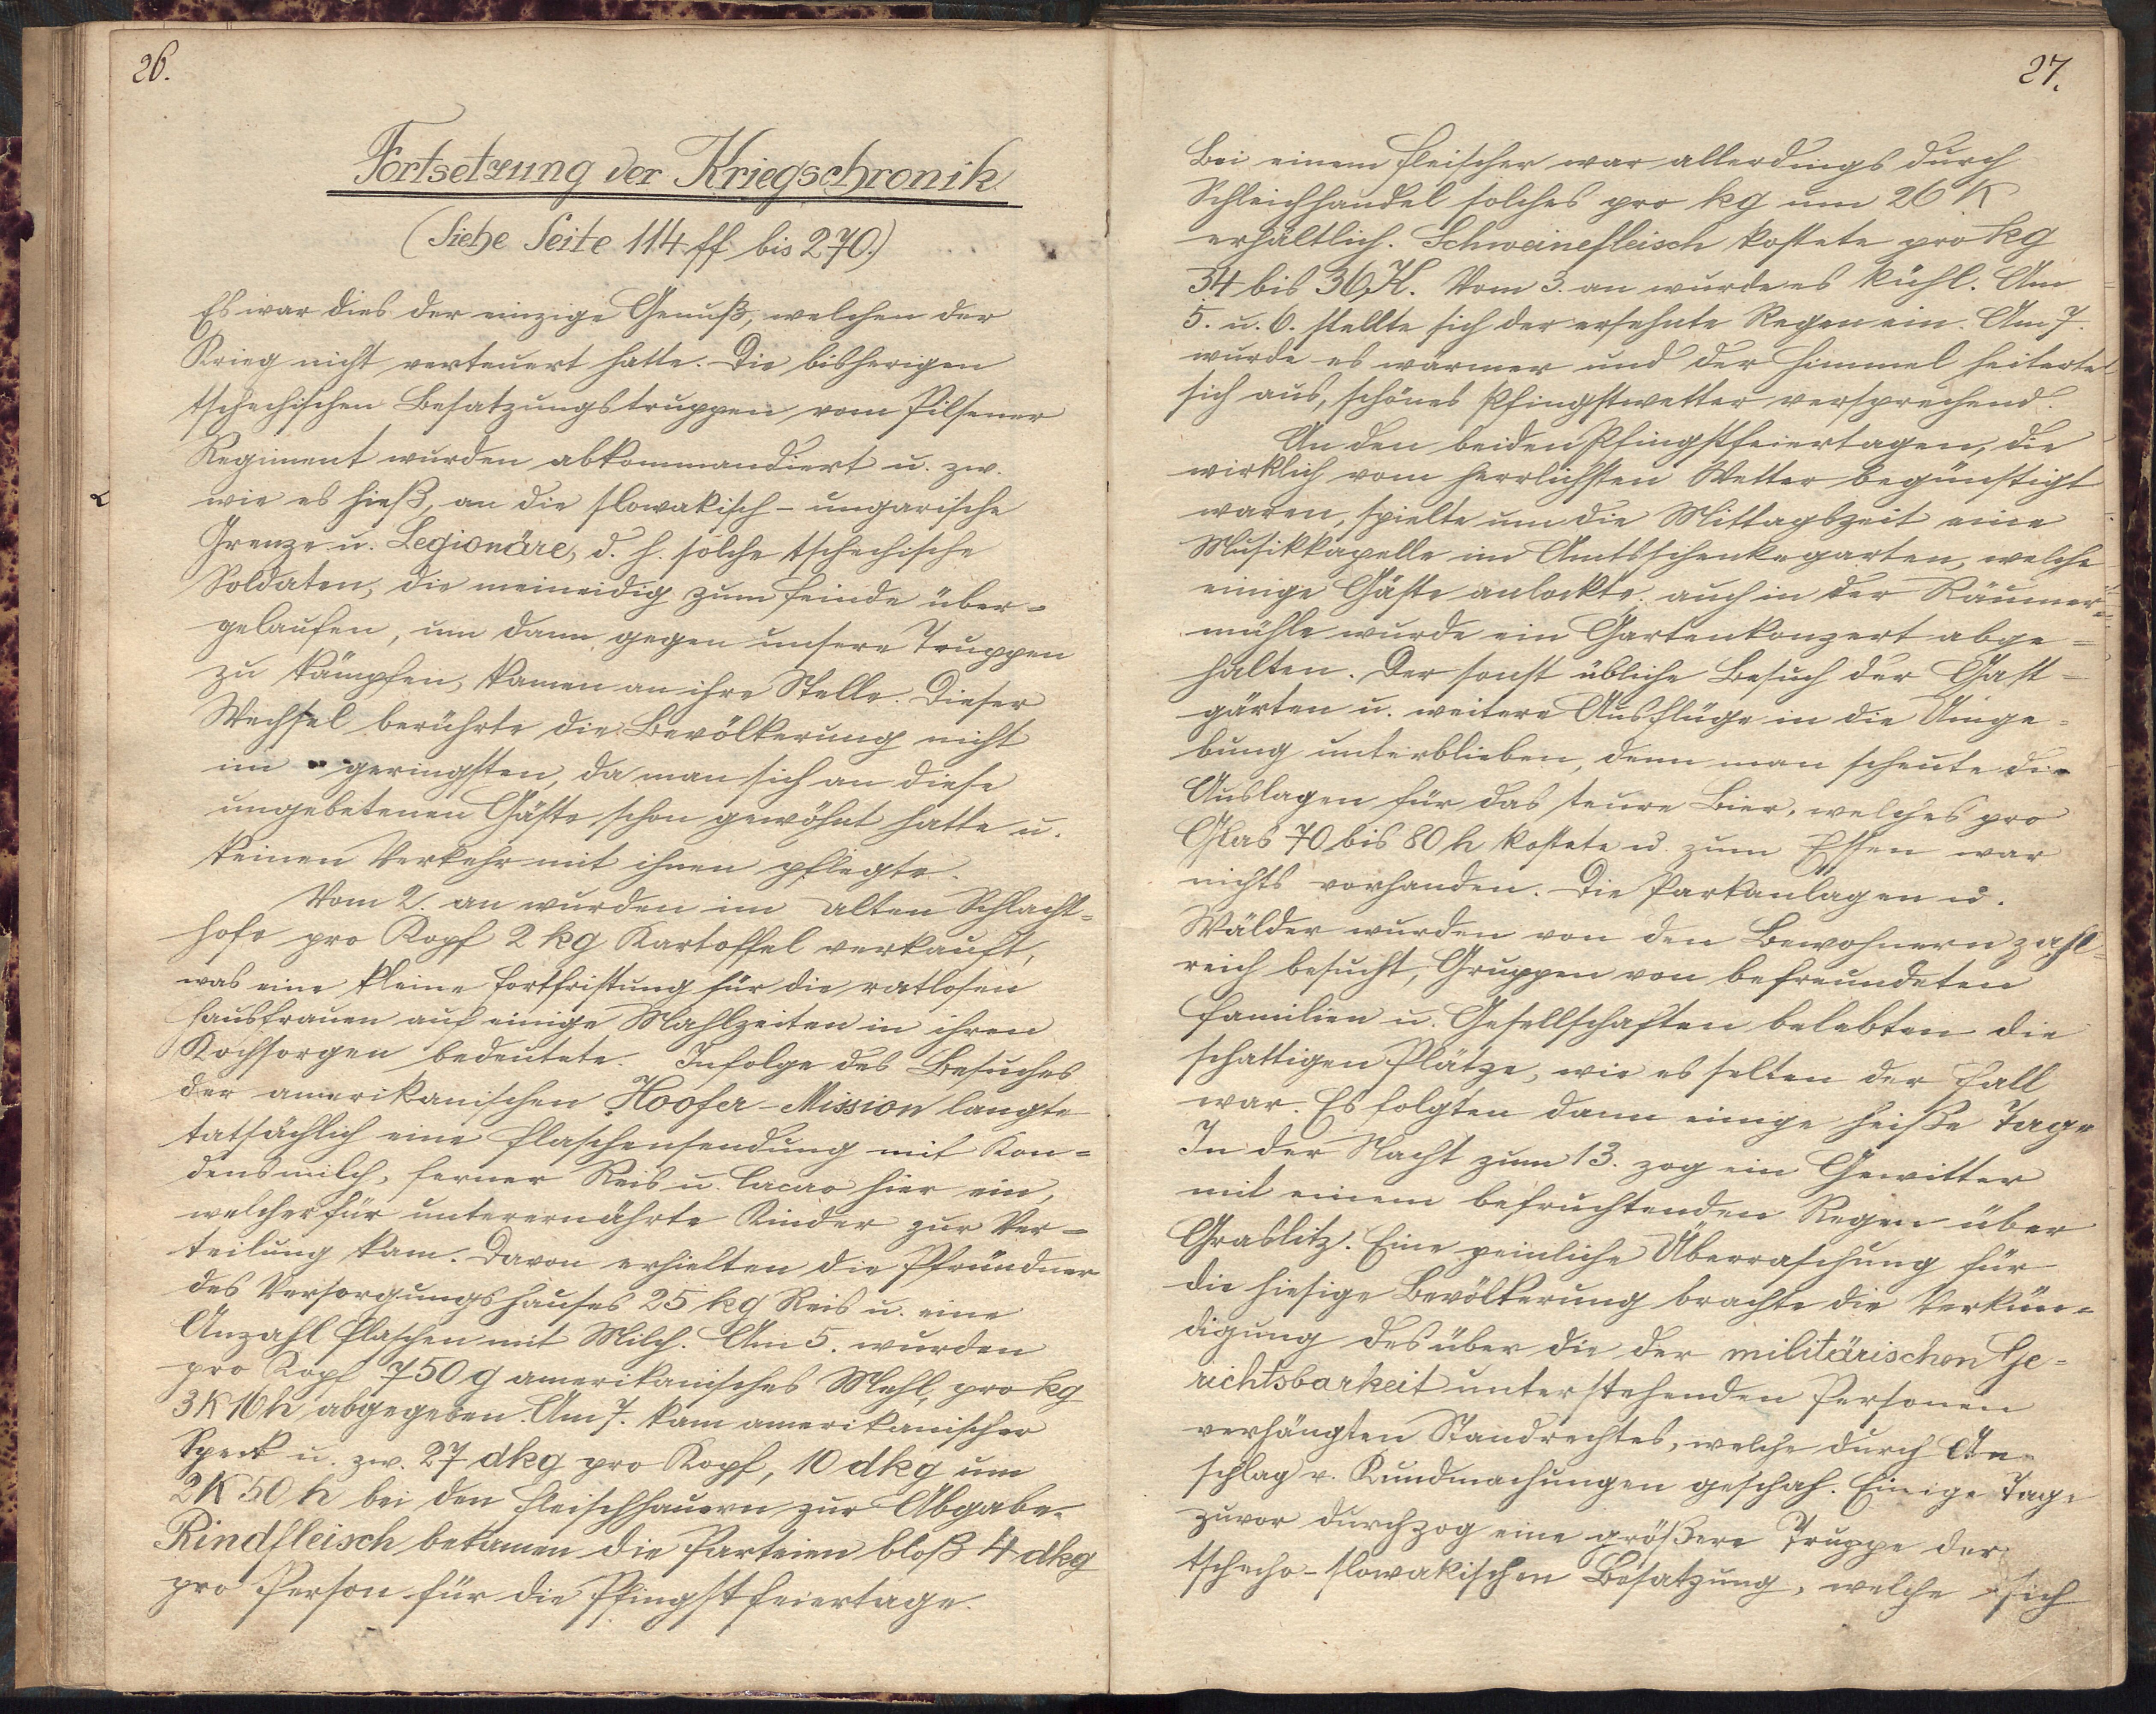 26.
Fortsetzung der Kriegschronik
(Siehe Seite 114 ff bis 270.)
Es war dies der einzige Genuß, welchen der
Krieg nicht verteuert hatte. Die bisherigen
tschechischen Besatzungstruppen vom Pilsener
Regiment wurden abkommandiert u. zw.
wie es hieß, an die slowakisch-ungarische
Grenze u. Legionäre, d. h. solche tschechische
Soldaten, die meineidig zum Feinde über=
gelaufen, um dann gegen unsere Truppen
zu kämpfen, kamen an ihre Stelle. Dieser
Wechsel berührte die Bevölkerung nicht
im geringsten, da man sich an diese
ungebetenen Gäste schon gewöhnt hatte u.
keinen Verkehr mit ihnen pflegte.
Vom 2. an wurden im alten Schlacht=
hofe pro Kopf 2 kg Kartoffel verkauft,
was eine kleine Fortfristung für die ratlosen
Hausfrauen auf einige Mahlzeiten in ihren
Kochsorgen bedeutete. Infolge des Besuches
der amerikanischen Hoofer-Mission langte
tatsächlich eine Flaschensendung mit Kon=
densmilch, ferner Reis u. Cacao hier ein,
welcher für unterernährte Kinder zur Ver=
teilung kam. Davon erhielten die Pfründner
des Versorgungshauses 25 kg Reis u. eine
Anzahl Flaschen mit Milch. Am 5. wurden
pro Kopf 750 g amerikanisches Mehl, pro kg
3 K 16 h abgegeben. Am 7. kam amerikanischer
Speck u. zw. 27 dkg pro Kopf, 10 dkg um
2 K 50 h bei den Fleischhauern zur Abgabe.
Rindfleisch bekamen die Parteien bloß 4 dkg
pro Person für die Pfingstfeiertage.
27.
Bei einem Fleischer war allerdings durch
Schleichhandel solches pro kg um 26 K
erhältlich. Schweinefleisch kostete pro kg
34 bis 36 K. Vom 3. an wurde es kühl. Am
5. u. 6. stellte sich der ersehnte Regen ein. Am 7.
wurde es wärmer und der Himmel heiterte
sich aus, schönes Pfingstwetter versprechend.
An den beiden Pfingstfeiertagen, die
wirklich vom herrlichsten Wetter begünstigt
waren, spielte um die Mittagszeit eine
Musikkapelle im Amtsschenkegarten, welche
einige Gäste anlockte. auch in der Räumer=
mühle wurde ein Gartenkonzert abge=
halten. Der sonst übliche Besuch der Gast=
gärten u. weitere Ausflüge in die Umge=
bung unterblieben, denn man scheute die
Auslagen für das teure Bier, welches pro
Glas 70 bis 80 h kostete u. zum Essen war
nichts vorhanden. Die Parkanlagen u.
Wälder wurden von den Bewohnern zahl=
reich besucht, Gruppen von befreundeten
Familien u. Gesellschaften belebten die
schattigen Plätze, wie es selten der Fall
war. Es folgten dann einige heiße Tage
In der Nacht zum 13. zog ein Gewitter
mit einem befruchtenden Regen über
Graslitz. Eine peinliche Überraschung für
die hiesige Bevölkerung brachte die Verkün=
digung des über die der militärischen Ge=
richtsbarkeit unterstehenden Personen
verhängten Standrechtes, welche durch An=
schlag v. Kundmachungen geschah. Einige Tage
zuvor durchzog eine größere Truppe der
tschecho-slowakischen Besatzung, welche sich